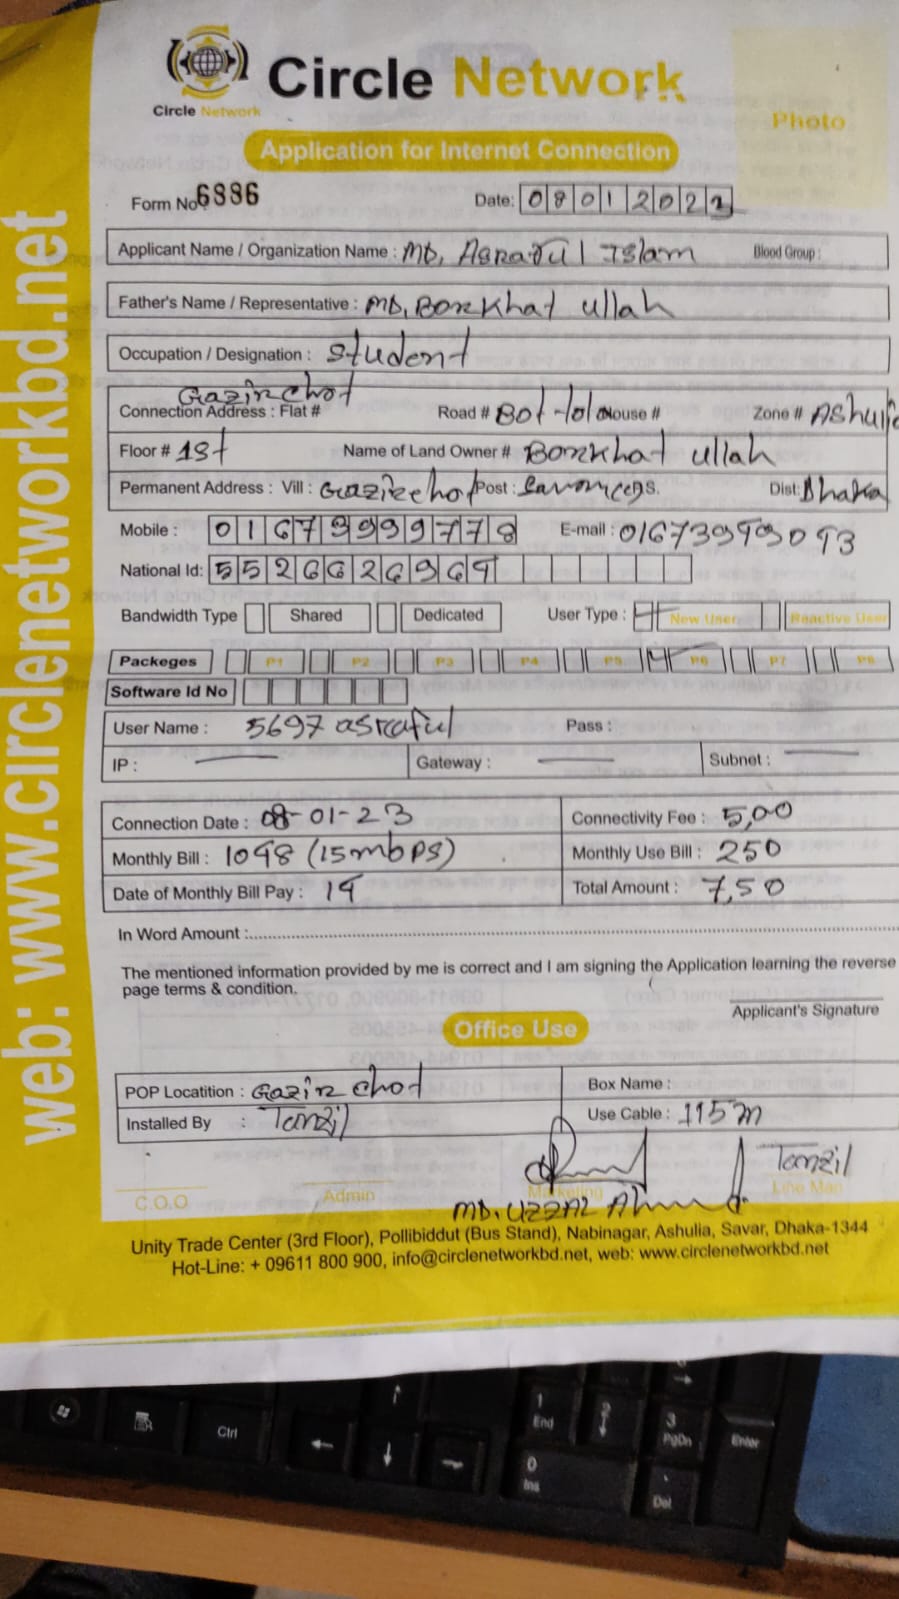 Circle Network
Circle Network
Photo
Application for Internet Connection
Form No 6886
Date: 08012023
Applicant Name / Organization Name : MD, Asraful Islam Blood Group :
Father's Name / Representative : MD, Borkhat ullah
Occupation / Designation : Student
Gazirchot
Connection Address : Flat # Road # Bot-tola House # Zone # Ashulia
Floor # 1st Name of Land Owner # Borkhat ullah
Permanent Address : Vill : Gazirchot Post : Dist: Dhaka
Mobile : 01673999778 E-mail : 01673999093
National Id: 5526626969
Bandwidth Type Shared Dedicated User Type : New User Reactive User
Packeges P1 P2 P3 P4 P5 P6 P7 P8
Software Id No
User Name : 5697 asraful Pass :
IP : Gateway : Subnet :
Connection Date : 08-01-23 Connectivity Fee : 5,00
Monthly Bill : 1098 (15mbps) Monthly Use Bill : 250
Date of Monthly Bill Pay : 19 Total Amount : 7,50
In Word Amount :
The mentioned information provided by me is correct and I am signing the Application learning the reverse
page terms & condition.
Applicant's Signature
Office Use
POP Locatition : Gazir chot Box Name :
Installed By : Tanzil Use Cable : 115m
Tanzil
C.O.O Admin Marketing Line Man
MD. UZZAL Ahmed
Unity Trade Center (3rd Floor), Pollibiddut (Bus Stand), Nabinagar, Ashulia, Savar, Dhaka-1344
Hot-Line: + 09611 800 900, info@circlenetworkbd.net, web: www.circlenetworkbd.net
web: www.circlenetworkbd.net
Ctrl
1
End
2
3
PgDn
Enter
0
Ins
.
Del